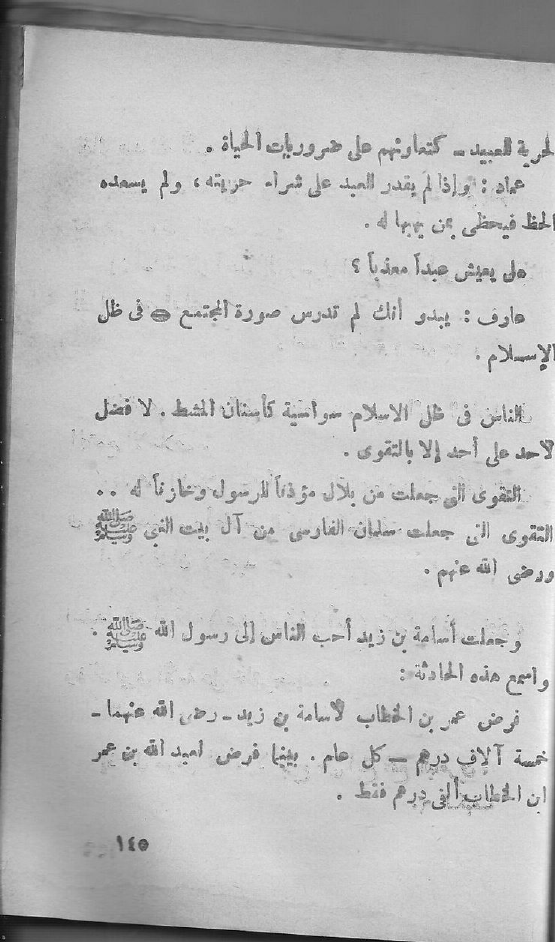 لحرية للعبيد ــ كتعاونهم على ضروريات الحياة .
عماد : وإذا لم يقدر العبد على شراء حريته ، ولم يسعده
الحظ فيحظى بمن يهبها له .
هل يعيش عبداً معذباً ؟
عارف : يبدو أنك لم تدرس صورة المجتمع فى ظل
الإسلام .
الناس فى ظل الاسلام سواسية كأسنان المشط . لا فضل
لاحد على أحد إلا بالتقوى .
التقوى التى جعلت من بلال مؤذناً للرسول وخازناً له . .
التقوى التى جعلت سلمان الفارسى من آل بيت النبى ﷺ
ورضى الله عنهم .
وجعلت أسامة بن زيد أحب الناس إلى رسول الله ﷺ .
واسمع هذه الحادثة :
فرض عمر بن الخطاب لأسامة بن زيد ــ رضى الله عنهما ــ
خمسة آلاف درهم ــ كل عام . بينما فرض لعبد الله بن عمر
ابن الخطاب ألفى درهم فقط .
١٤٥